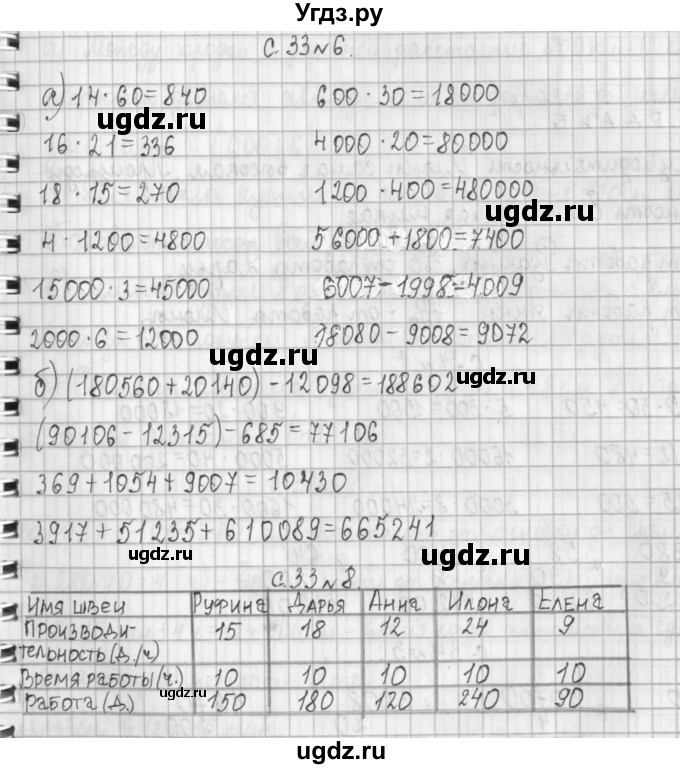 Угдз.ру
С. 33 №6.
а) 14 · 60 = 840 600 · 30 = 18000
ugdz.ru
16 · 21 = 336 4000 · 20 = 80000
18 · 15 = 270 1200 · 400 = 480000
ugdz.ru
4 · 1200 = 4800 56000 + 1800 = 7400
15000 · 3 = 45000 6007 - 1998 = 4009
2000 · 6 = 12000 18080 - 9008 = 9072
ugdz.ru
б) (180560 + 20140) - 12098 = 188602
ugdz.ru
(90106 - 12315) - 685 = 77106
369 + 1054 + 9007 = 10430
3917 + 51235 + 610089 = 665241
ugdz.ru
ugdz.ru
С. 33 №8.
Имя швеи Руфина Дарья Анна Илона Елена
Производи- 15 18 12 24 9
тельность (д./ч)
ugdz.ru
Время работы (ч.) 10 10 10 10 10
ugdz.ru
Работа (Д.) 150 180 120 240 90
ugdz.ru